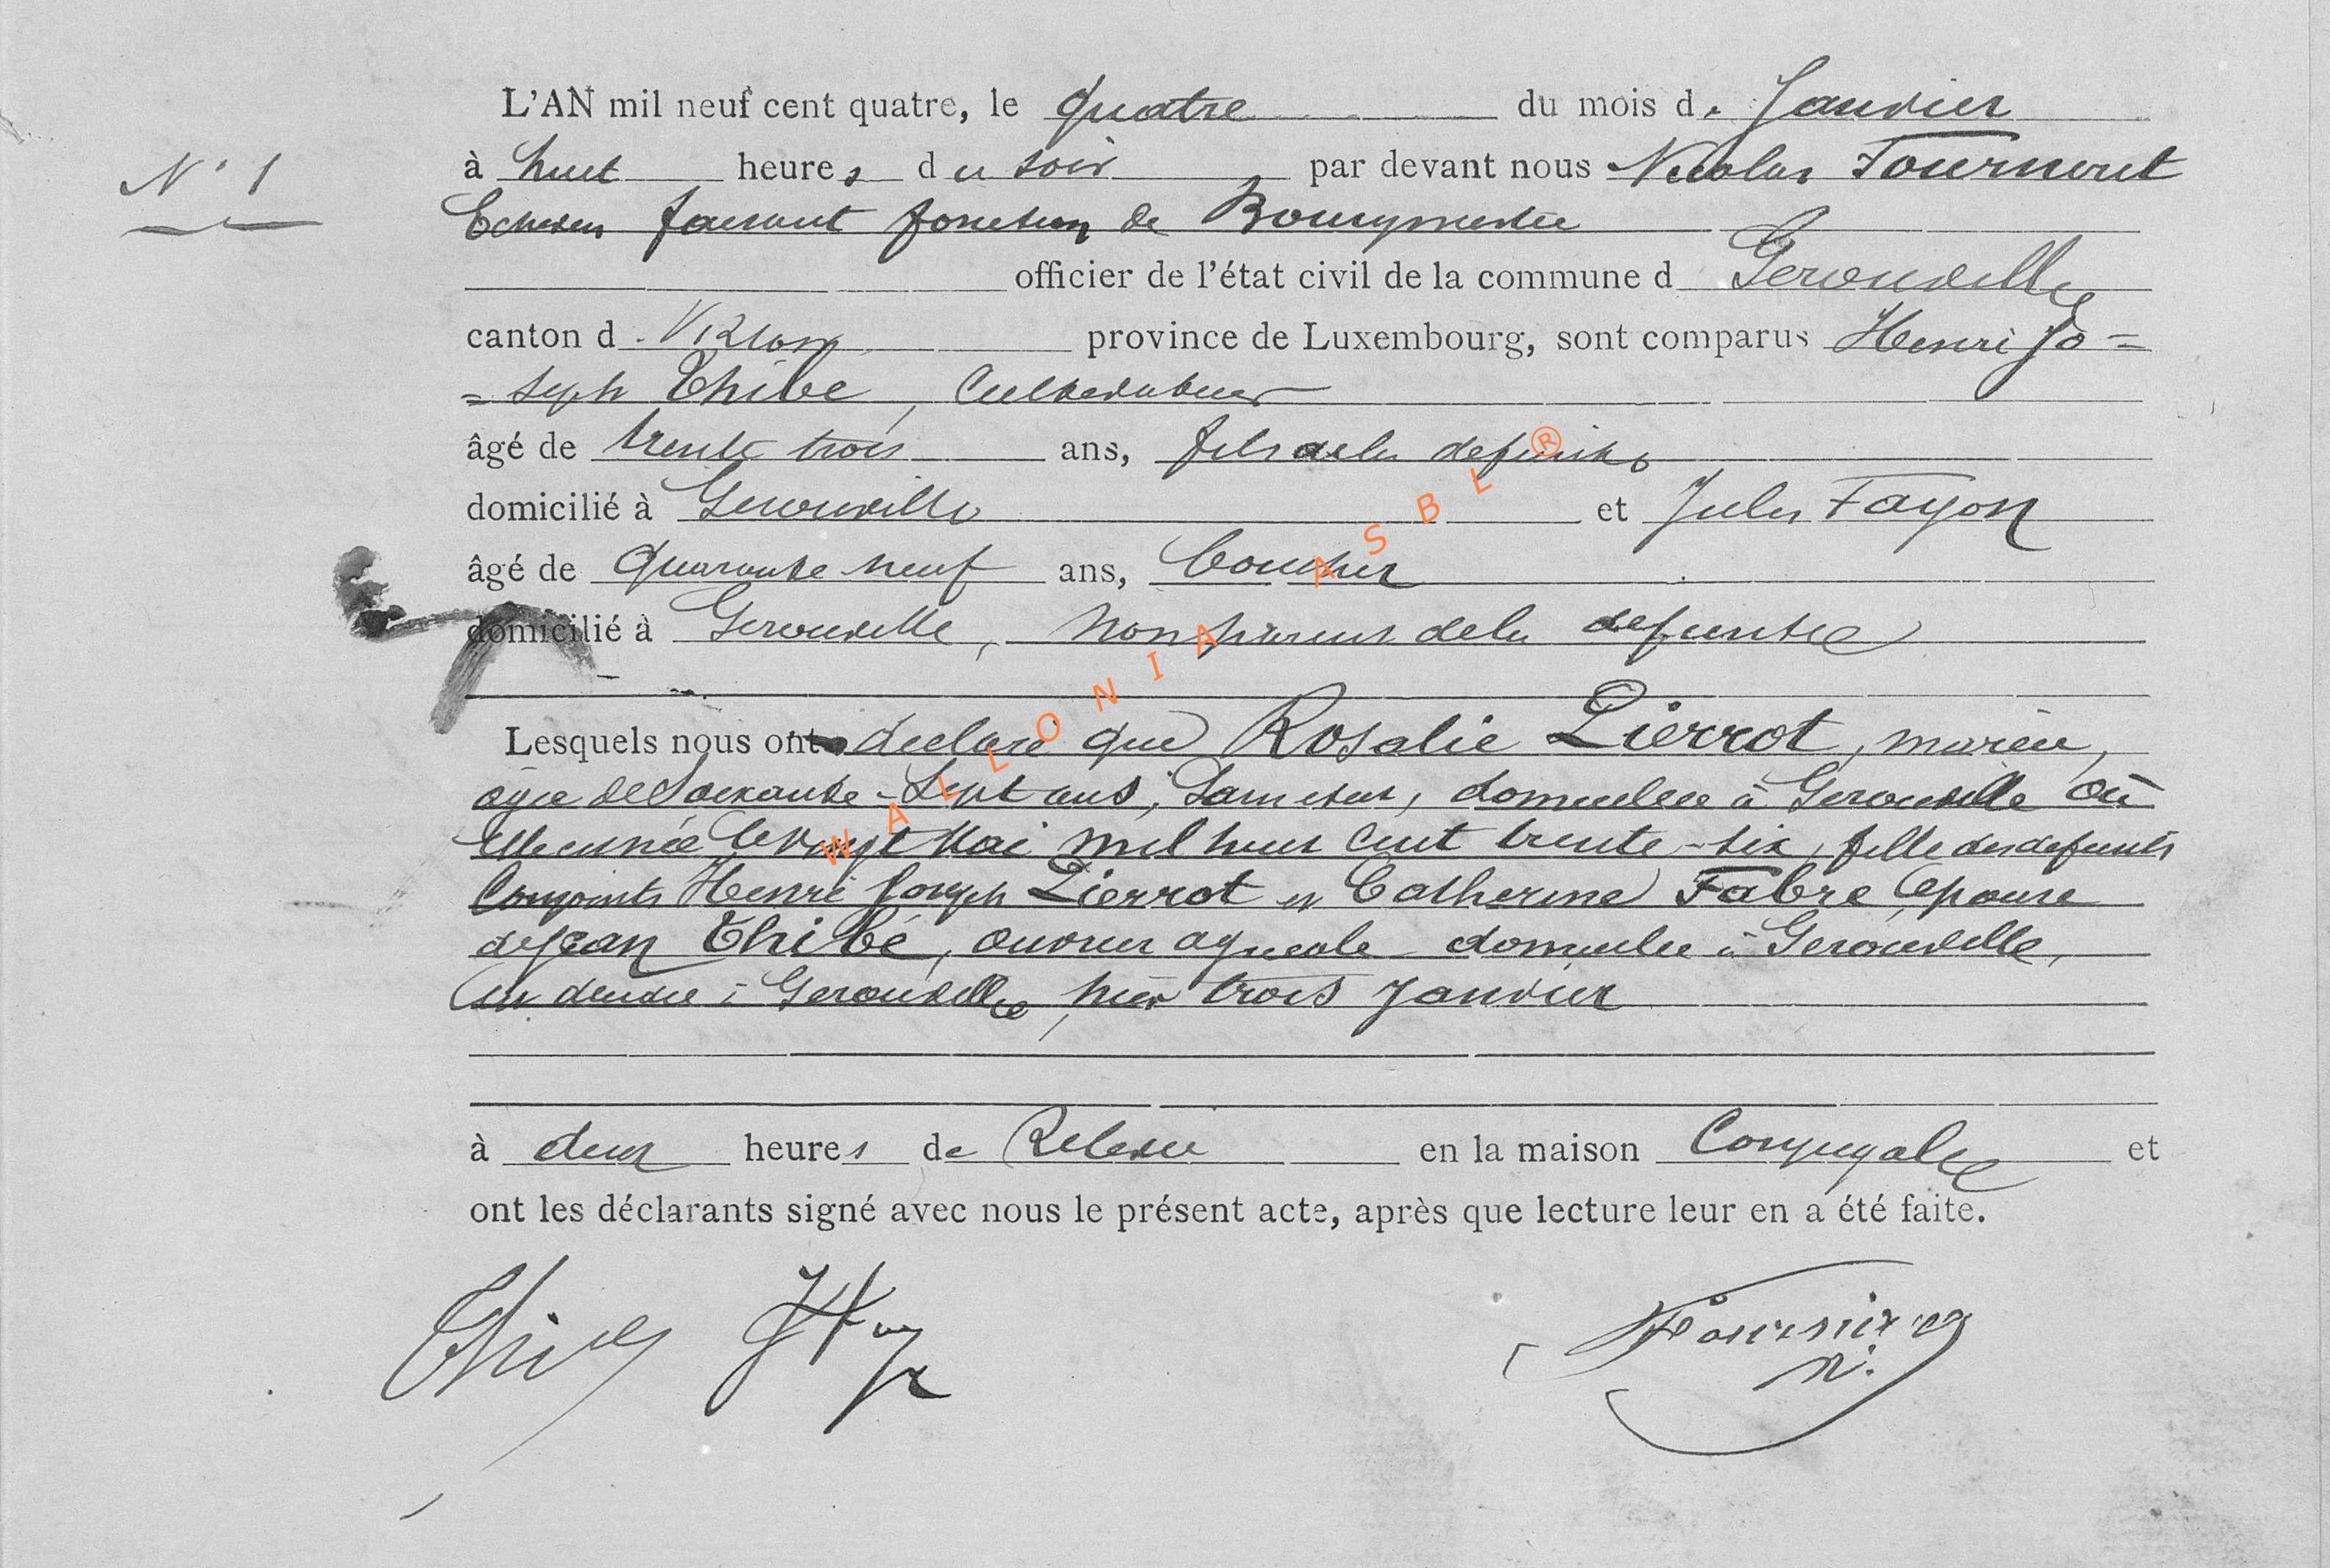 L'AN mil neuf cent quatre, le quatre du mois de Janvier
N° 1
à huit heures du soir par devant nous Nicolas
Echevin faisant fonction de Bourgmestre
officier de l'état civil de la commune d Gerouville
canton d Virton province de Luxembourg, sont comparus Henri Jo=
=seph Thibé, Cultivateur
âgé de trente trois ans, fils de la defunte
domicilié à Gerouville et Jules Fayon
âgé de Quarante neuf ans,
domicilié à Gerouville, non parent de la defunte
Lesquels nous ont declaré que Rosalie Pierrot, mariée,
agée de Soixante-Sept ans, domiciliée à Gerouville où
Elle est née le vingt Mai mil huit cent trente-six, fille des defunts
Conjoints Henri Joseph Pierrot et Catherine Fabre Epouse
de Jean Thibé, ouvrier agricole domiciliée à Gerouville,
est decedée à Gerouville, hier trois Janvier
à deux heures de Relevée en la maison Conjugale et
ont les déclarants signé avec nous le présent acte, après que lecture leur en a été faite.
WALLONIA ASBL ®